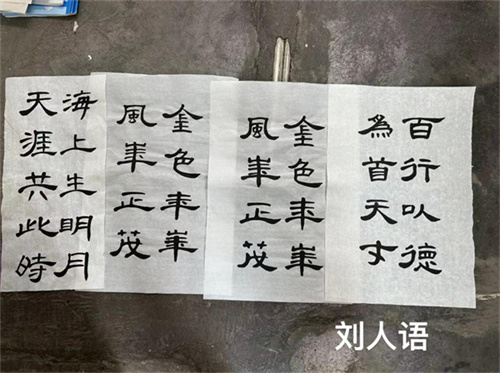 百行以德
為首天
金色年華
風華正茂
金色年華
風華正茂
海上生明月
天涯共此時
刘人语